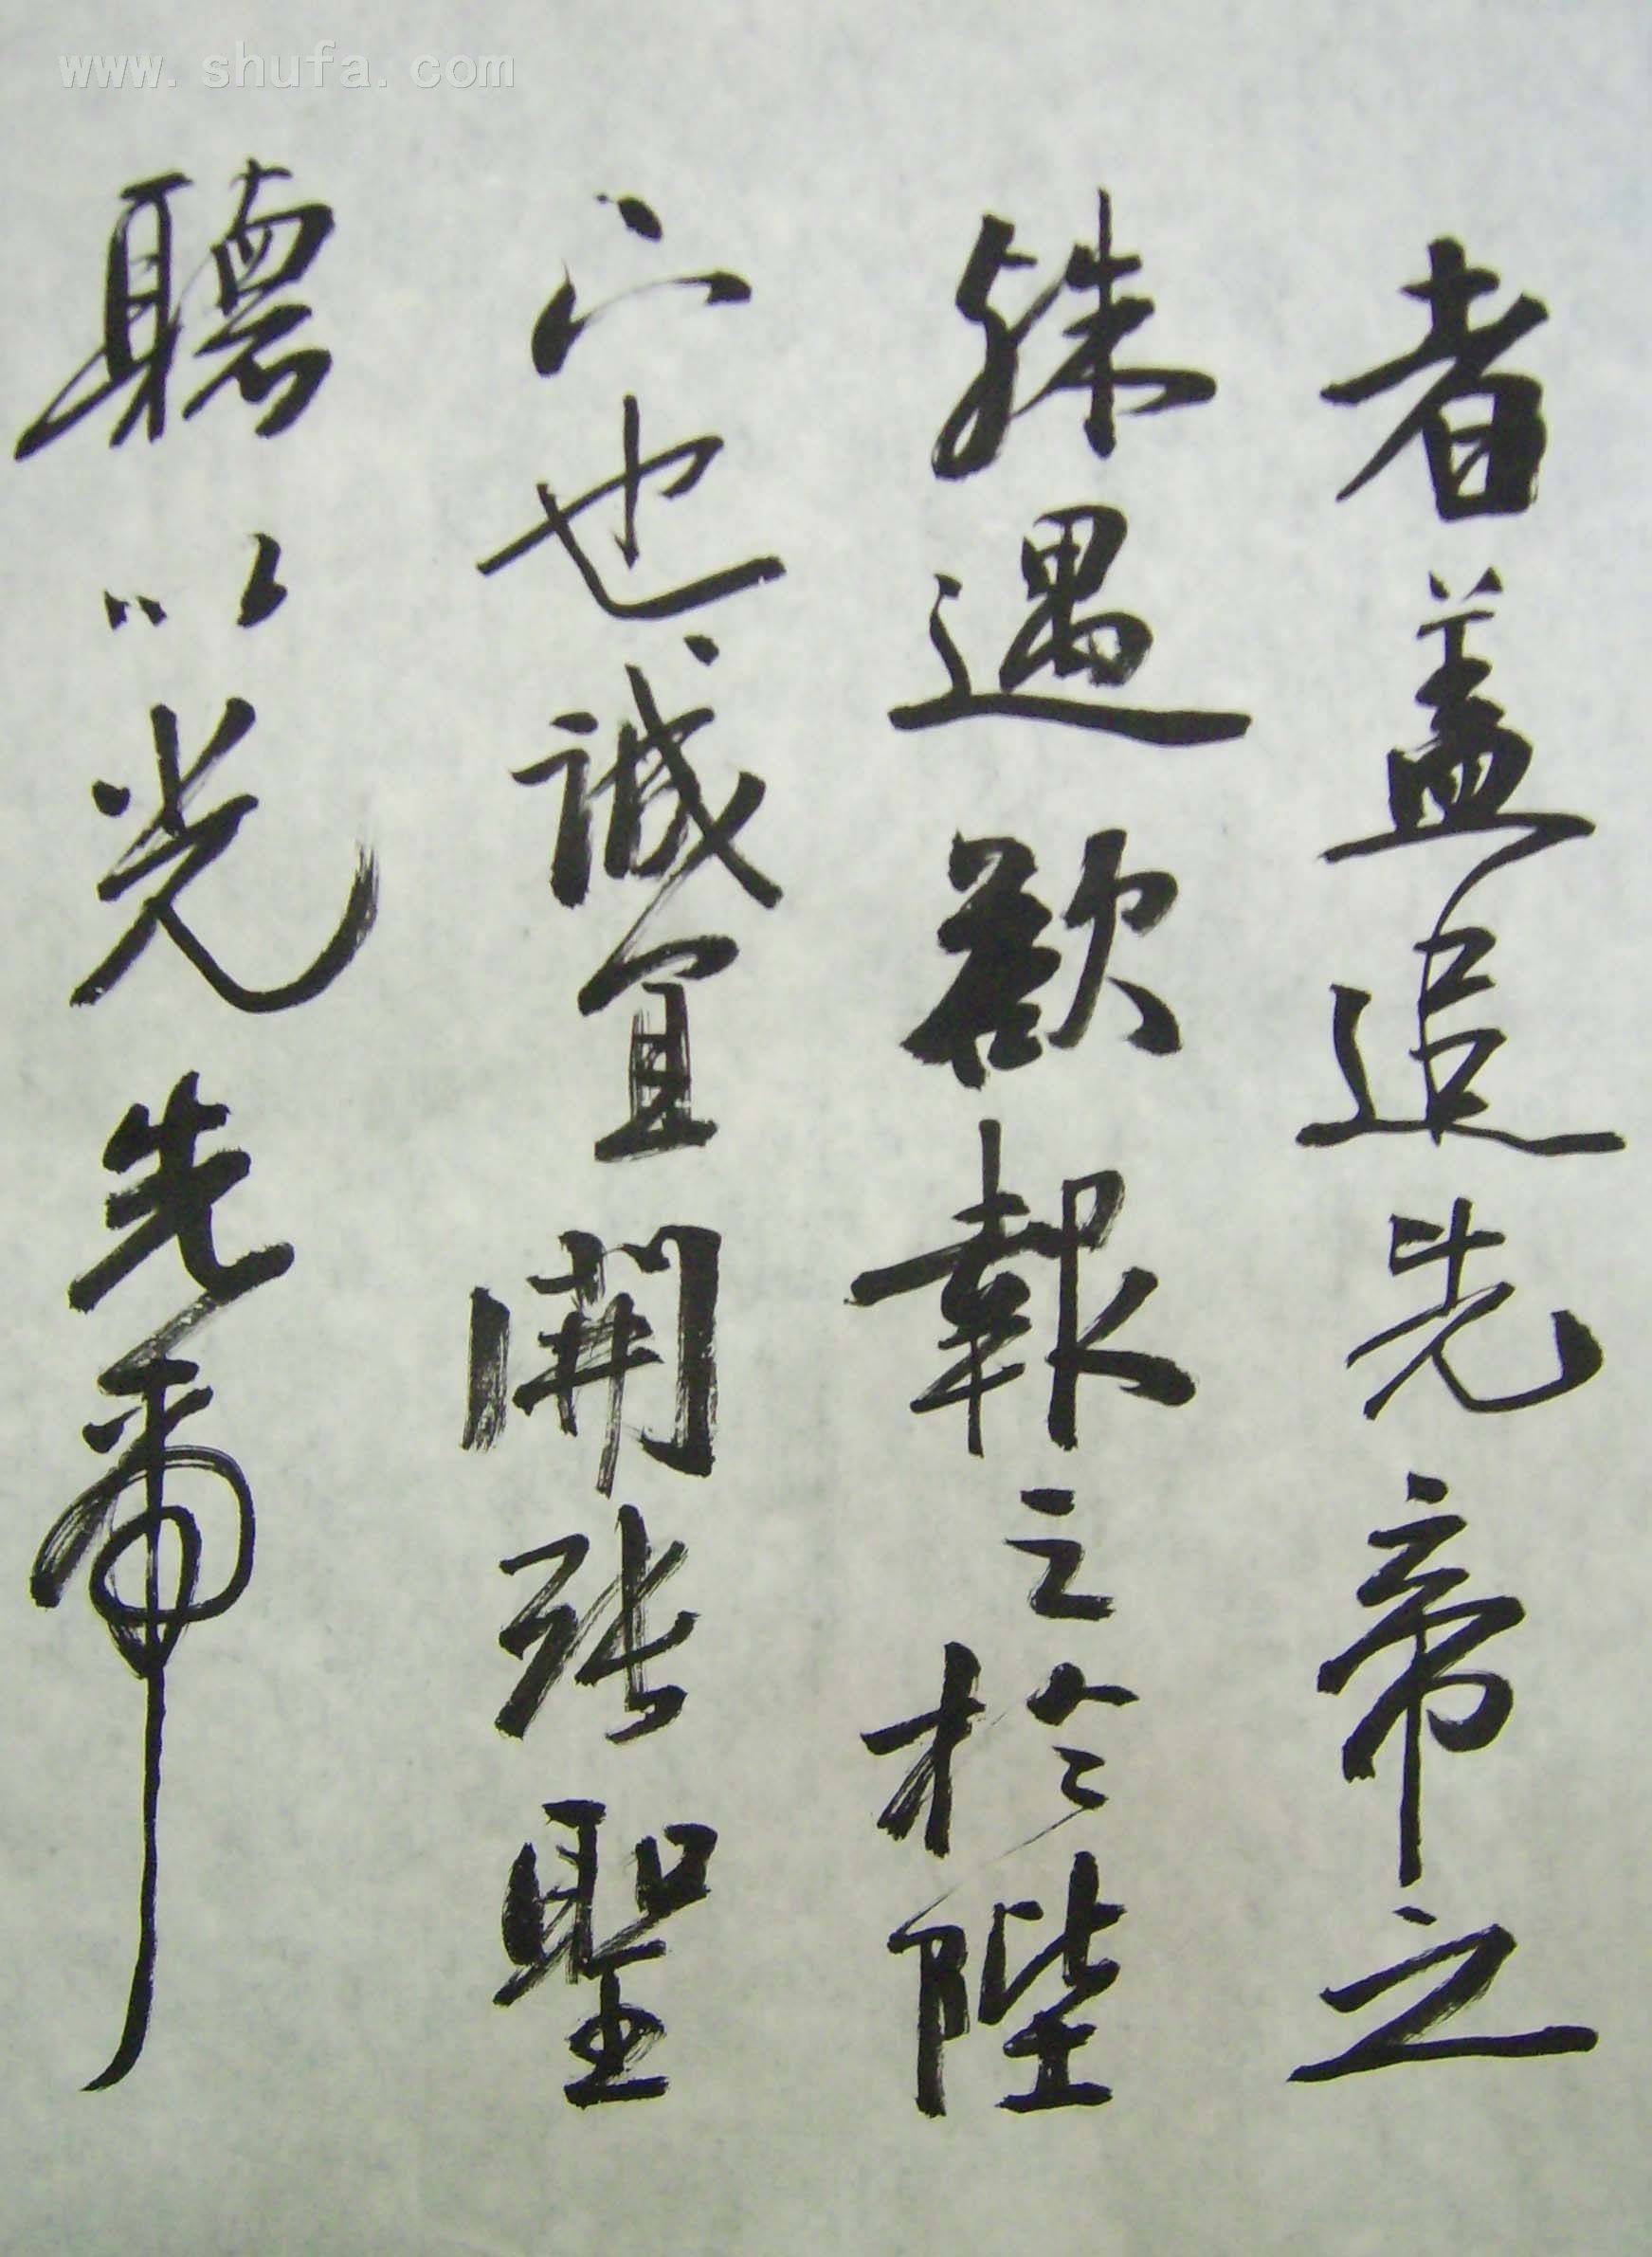 www.shufa.com
者盖追先帝之
殊遇欲報之於陛
下也誠宜開張聖
聽以光先帝